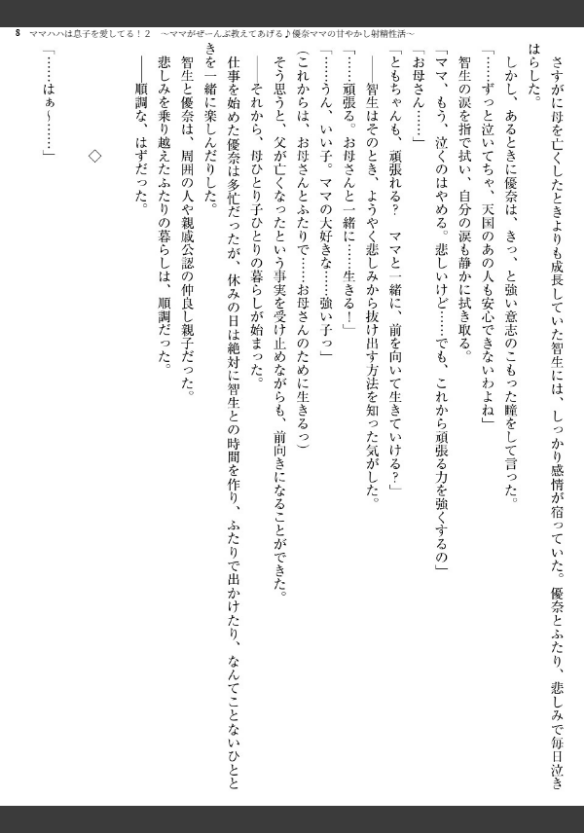 8 ママハハは息子を愛してる！２　～ママがぜーんぶ教えてあげる♪優奈ママの甘やかし射精性活～
さすがに母を亡くしたときよりも成長していた智生には、しっかり感情が宿っていた。優奈とふたり、悲しみで毎日泣き
はらした。
しかし、あるときに優奈は、きっ、と強い意志のこもった瞳をして言った。
「……ずっと泣いてちゃ、天国のあの人も安心できないわよね」
智生の涙を指で拭い、自分の涙も静かに拭き取る。
「ママ、もう、泣くのはやめる。悲しいけど……でも、これから頑張る力を強くするの」
「お母さん……」
「ともちゃんも、頑張れる？　ママと一緒に、前を向いて生きていける？」
――智生はそのとき、ようやく悲しみから抜け出す方法を知った気がした。
「……頑張る。お母さんと一緒に……生きる！」
「……うん、いい子。ママの大好きな……強い子っ」
（これからは、お母さんとふたりで……お母さんのために生きるっ）
そう思うと、父が亡くなったという事実を受け止めながらも、前向きになることができた。
――それから、母ひとり子ひとりの暮らしが始まった。
仕事を始めた優奈は多忙だったが、休みの日は絶対に智生との時間を作り、ふたりで出かけたり、なんてことないひとと
きを一緒に楽しんだりした。
智生と優奈は、周囲の人や親戚公認の仲良し親子だった。
悲しみを乗り越えたふたりの暮らしは、順調だった。
――順調な、はずだった。
◇
「……はぁ～……」